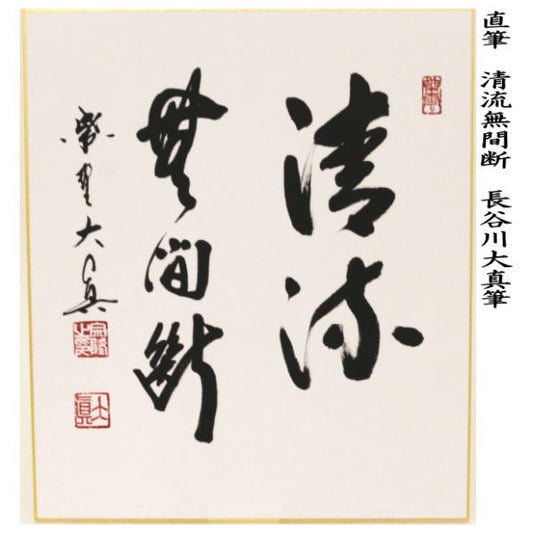 直筆 清流無間断 長谷川大真筆
清流
無間断
紫野大真
大真